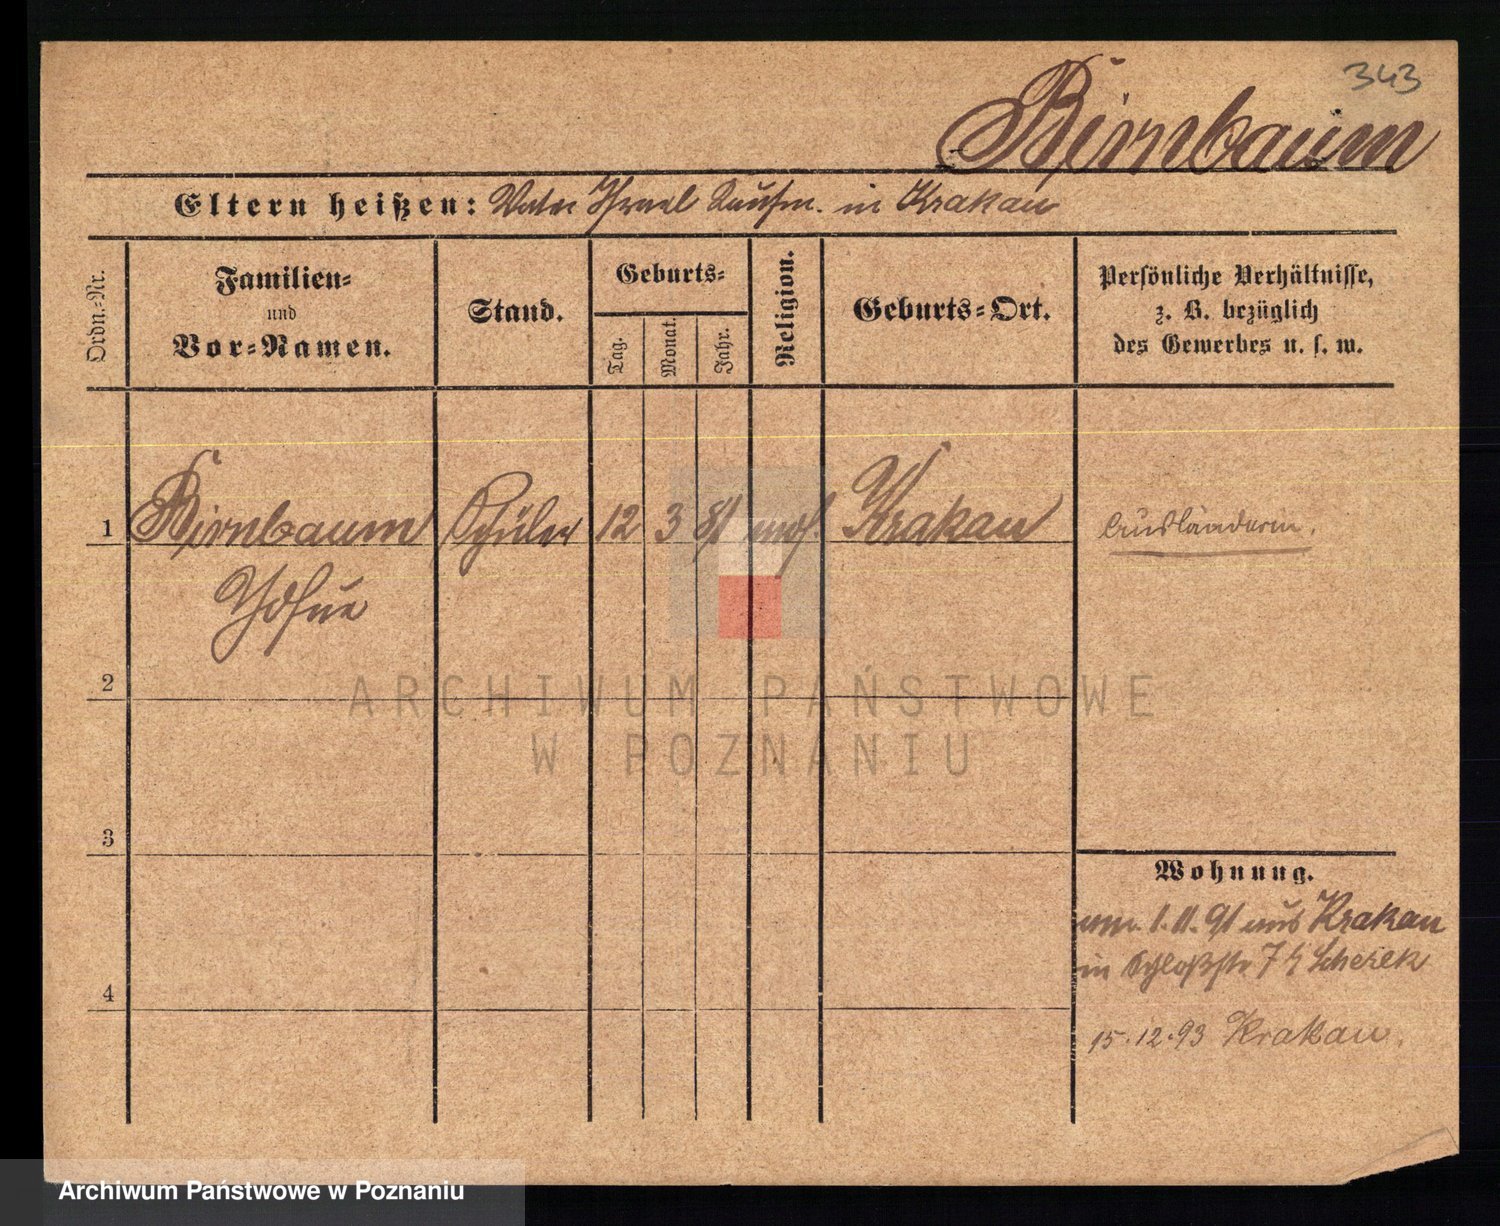 343
Birnbaum
Eltern heißen: Vater Israel Kaufm. in Krakau
Ordn.-Nr.
Familien-
und
Vor-Namen.
Stand.
Geburts-
Tag.
Monat.
Jahr.
Religion.
Geburts-Ort.
Persönliche Verhältnisse,
z. B. bezüglich
des Gewerbes u. s. w.
1 Birnbaum Schüler 12 3 81 mos. Krakau Ausländerin.
2
3
4
Wohnung.
1.11.91 aus Krakau
in Schloßstr
15.12.93 Krakau.
ARCHIWUM PAŃSTWOWE
W POZNANIU
Archiwum Państwowe w Poznaniu